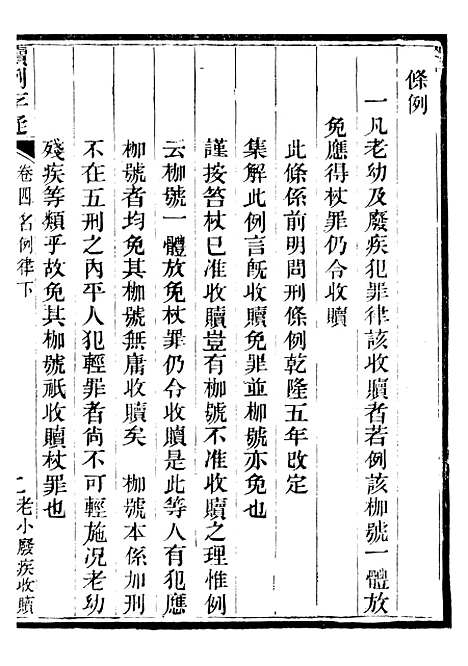 條例
一凡老幼及廢疾犯罪律該收贖者若例該枷號一體放
免應得杖罪仍令收贖
此條係前明問刑條例乾隆五年改定
集解此例言旣收贖免罪並枷號亦免也
謹按笞杖已准收贖豈有枷號不准收贖之理惟例
云枷號一體放免杖罪仍令收贖是此等人有犯應
枷號者均免其枷號無庸收贖矣 枷號本係加刑
不在五刑之內平人犯輕罪者尙不可輕施況老幼
殘疾等類乎故免其枷號祇收贖杖罪也
讀例存疑
卷四名例律下
老小廢疾收贖